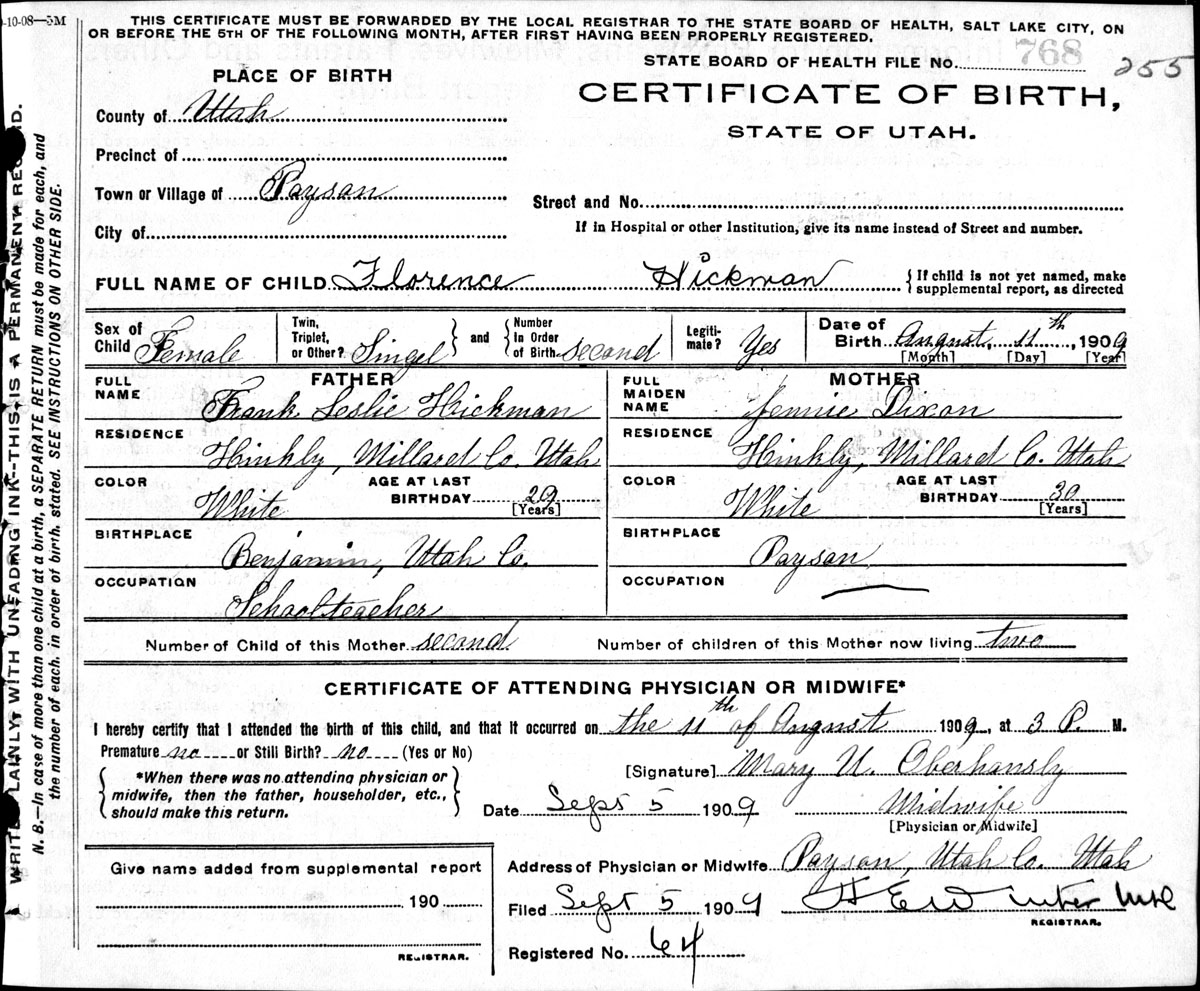 -10-08—5M
THIS CERTIFICATE MUST BE FORWARDED BY THE LOCAL REGISTRAR TO THE STATE BOARD OF HEALTH, SALT LAKE CITY, ON
OR BEFORE THE 5TH OF THE FOLLOWING MONTH, AFTER FIRST HAVING BEEN PROPERLY REGISTERED.
STATE BOARD OF HEALTH FILE NO. 768
255
PLACE OF BIRTH
CERTIFICATE OF BIRTH,
STATE OF UTAH.
County of Utah
Precinct of
Town or Village of Payson
City of
Street and No.
If in Hospital or other Institution, give its name instead of Street and number.
FULL NAME OF CHILD Florence Hickman { If child is not yet named, make
supplemental report, as directed
Sex of Child Female
Twin, Triplet, or Other? Singel
and
Number In Order of Birth second
Legiti-mate? Yes
Date of Birth August, 11th, 1909
[Month] [Day] [Year]
FATHER
FULL NAME Frank Leslie Hickman
RESIDENCE Hinkly, Millard Co. Utah
COLOR White
AGE AT LAST BIRTHDAY 29
[Years]
BIRTHPLACE Benjamin, Utah Co.
OCCUPATION Schoolteacher
MOTHER
FULL MAIDEN NAME Jennie Dixon
RESIDENCE Hinkly, Millard Co. Utah
COLOR White
AGE AT LAST BIRTHDAY 30
[Years]
BIRTHPLACE Payson
OCCUPATION
Number of Child of this Mother second Number of children of this Mother now living two
CERTIFICATE OF ATTENDING PHYSICIAN OR MIDWIFE*
I hereby certify that I attended the birth of this child, and that it occurred on the 11th of August 1909, at 3 P. M.
Premature no or Still Birth? no (Yes or No)
*When there was no attending physician or
midwife, then the father, householder, etc.,
should make this return.
[Signature] Mary U. Oberhansly
Date Sept 5 1909 Midwife
[Physician or Midwife]
Address of Physician or Midwife Payson, Utah Co. Utah
Filed Sept 5 1909
REGISTRAR.
Registered No. 64
Give name added from supplemental report
190
REGISTRAR.
WRITE PLAINLY, WITH UNFADING INK--THIS IS A PERMANENT RECORD.
N. B.—In case of more than one child at a birth, a SEPARATE RETURN must be made for each, and
the number of each. in order of birth. stated. SEE INSTRUCTIONS ON OTHER SIDE.